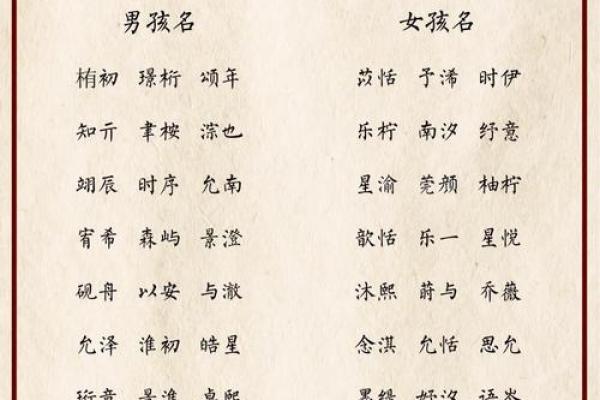 男孩名
栯初 璟桁 颂年
知亓 聿桉 淙也
翊辰 时序 允南
宥希 森屿 景澄
砚舟 以安 与澈
允泽 淮初 皓星
景淮
女孩名
苡恬 予浠 时伊
乐柠 南汐 纾意
星渝 莞颜 柚柠
歆恬 乐一 星悦
沐熙 莳与 乔薇
念淇 允恬 思允
妤汐